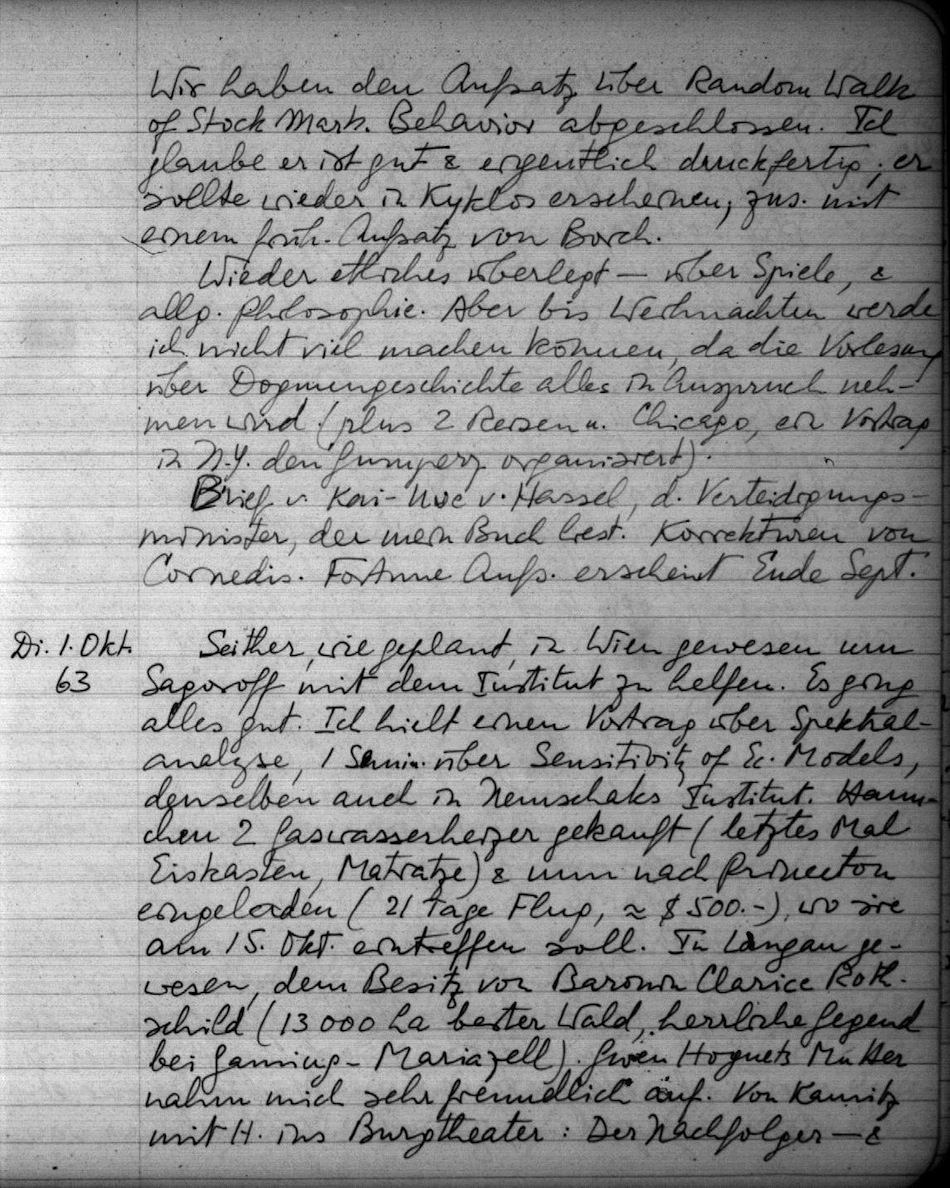 Wir haben den Aufsatz über Random Walk
of Stock Mark. Behavior abgeschlossen. Ich
glaube er ist gut & eigentlich druckfertig; er
sollte wieder in Kyklos erscheinen, zus. mit
einem früh. Aufsatz von Borch.
Wieder etliches überlegt — über Spiele, &
allg. Philosophie. Aber bis Weihnachten werde
ich nicht viel machen können, da die Vorlesung
über Dogmengeschichte alles in Anspruch neh-
men wird (plus 2 Reisen n. Chicago, ein Vortrag
in N.Y. den Gumperz organisiert).
Brief v. Kai-Uwe v. Hassel, d. Verteidigungs-
minister, der mein Buch liest. Korrekturen von
Fortune Aufs. erscheint Ende Sept.
Di. 1. Okt.
63
Seither, wie geplant, in Wien gewesen um
Sagoroff mit dem Institut zu helfen. Es ging
alles gut. Ich hielt einen Vortrag über Spektral-
analyse, 1 Semin. über Sensitivity of Ec. Models,
denselben auch in Nemschaks Institut. Hann-
chen 2 Gaswasserheizer gekauft (letztes Mal
Eiskasten, Matratze) & nun nach Princeton
eingeladen (21 Tage Flug, ≈ $ 500.-), wo sie
am 15. Okt. eintreffen soll. In Langau ge-
wesen, dem Besitz von Baronin Clarice Roth-
schild (13 000 ha bester Wald, herrliche Gegend
bei Gaming - Mariazell). Hoguets Mutter
nahm mich sehr freundlich auf. Von
mit H. ins Burgtheater: Der Nachfolger — &